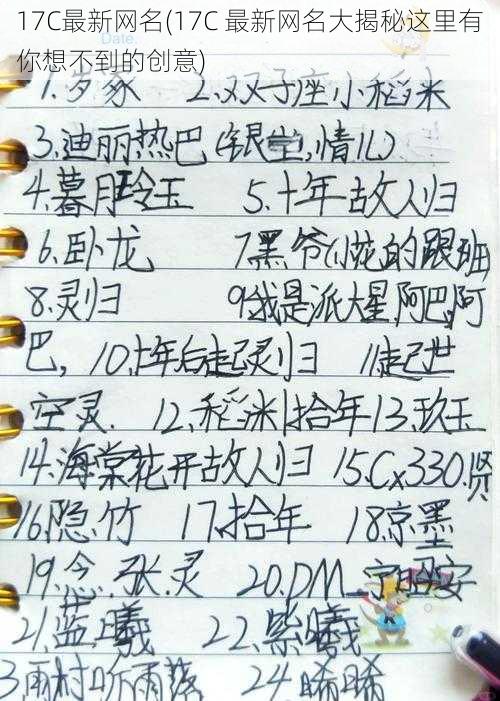 17C最新网名(17C 最新网名大揭秘这里有
你想不到的创意)
Date.
1.岁豪 2.双子座小稻米
3.迪丽热巴(银堂,情儿)
4.暮月玲玉 5.十年故人归
6.卧龙 7黑爷(花的跟班
8.灵归 9.我是派大星阿巴,阿
巴, 10.十年后起灵归 11.起世
空灵. 12.稻米|拾年13.玖玉
14.海棠花开故人归 15.Cx330.贤
16.隐.竹 17.拾年 18.京墨
19. 张.灵 20.DM_
21.蓝曦 22.紫曦
3.雨村听雨落 24.晞晞